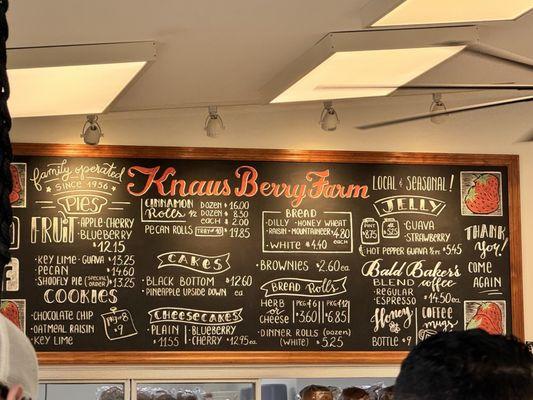 family operated
SINCE 1956
Knaus Berry Farm
LOCAL & SEASONAL!
PIES
FRUIT
APPLE - CHERRY
BLUEBERRY
12.15
KEY LIME - GUAVA 13.25
PECAN 14.60
SHOOFLY PIE (SPECIAL ORDER) 13.25
COOKIES
CHOCOLATE CHIP
OATMEAL RAISIN
KEY LIME
CINNAMON ROLLS
DOZEN 16.00
½ DOZEN 8.30
EACH 2.00
PECAN ROLLS 19.85
CAKES
BLACK BOTTOM 12.60
PINEAPPLE UPSIDE DOWN ea
CHEESECAKES
PLAIN 11.55
BLUEBERRY
CHERRY 12.95 ea
BREAD
DILLY - HONEY WHEAT
RAISIN - MULTIGRAIN 4.80
WHITE $4.40
BROWNIES 2.60 ea
BREAD Rolls
HERB or CHEESE
PKG 6 3.60
PKG 12 6.85
DINNER ROLLS (DOZEN)
(WHITE) 5.25
JELLY
GUAVA
STRAWBERRY
HOT PEPPER GUAVA $5.45
Bald Baker's
BLEND coffee
REGULAR
ESPRESSO 14.50 ea
Honey
BOTTLE $9
coffee mugs
THANK You!
COME AGAIN